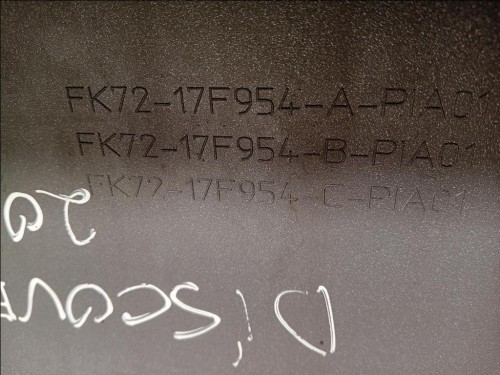 FK72-17F954-A-PIAC1
FK72-17F954-B-PIAC1
FK72-17F954-C-PIAC1
20